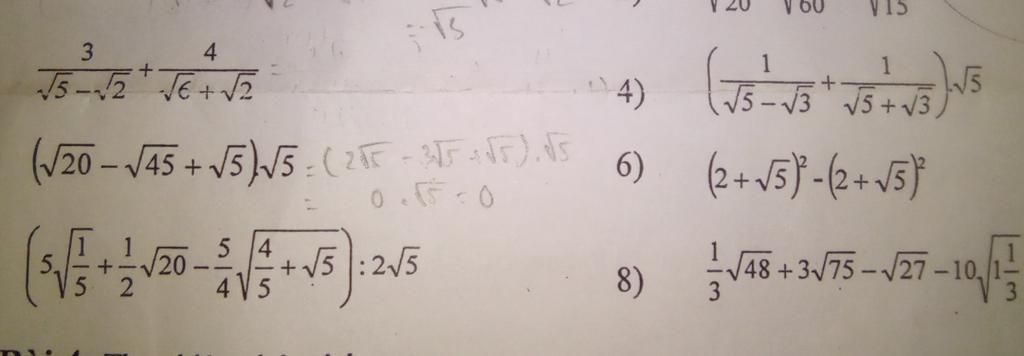 √20 √60 √15
= √5
3/(√5 − √2) + 4/(√6 + √2) =
4) (1/(√5 − √3) + 1/(√5 + √3)).√5
(√20 − √45 + √5).√5 = (2√5 − 3√5 + √5).√5
= 0 . √5 = 0
6) (2 + √5)² - (2 + √5)²
(5√(1/5) + 1/2 √20 − 5/4 √(4/5 + √5)) : 2√5
8) 1/3 √48 + 3√75 − √27 − 10√(1 1/3)